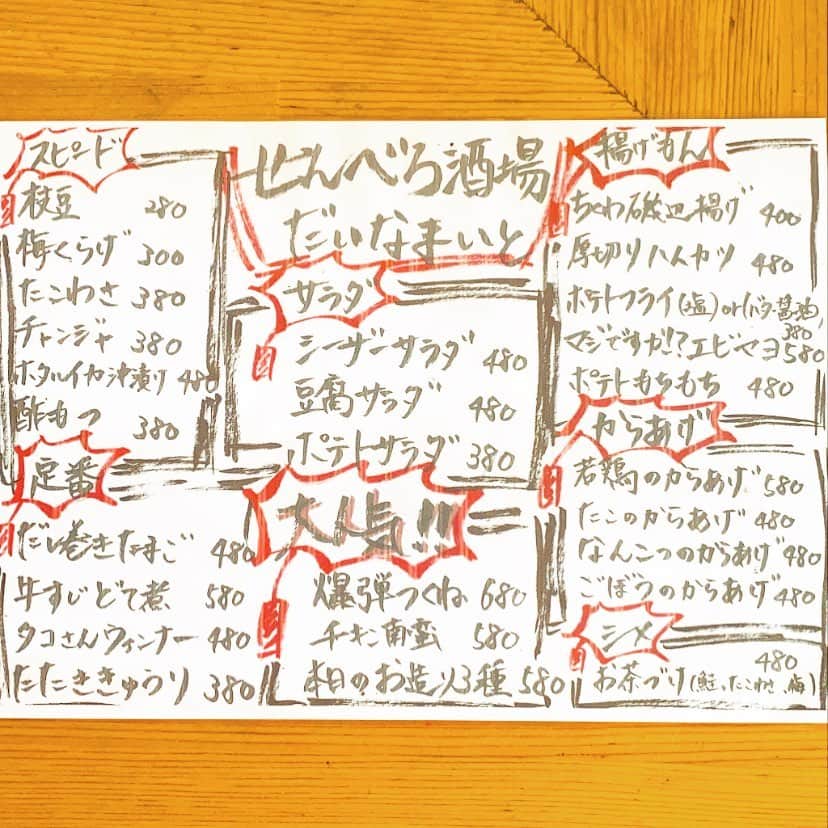 スピード
枝豆 280
梅くらげ 300
たこわさ 380
チャンジャ 380
ホタルイカ沖漬け 480
酢もつ 380
定番
だし巻きたまご 480
牛すじどて煮 580
タコさんウィンナー 480
たたききゅうり 380
せんべろ酒場
だいなまいと
サラダ
シーザーサラダ 480
豆腐サラダ 480
ポテトサラダ 380
大人気!!
爆弾つくね 680
チキン南蛮 580
本日のお造り3種 580
揚げもん
ちくわ磯辺揚げ 400
厚切りハムカツ 480
ポテトフライ(塩)or(バター醤油) 380
マジですか!?エビマヨ 580
ポテトもちもち 480
からあげ
若鶏のからあげ 580
たこのからあげ 480
なんこつのからあげ 480
ごぼうのからあげ 480
シメ
お茶づけ(鮭、たこわさ、梅) 480